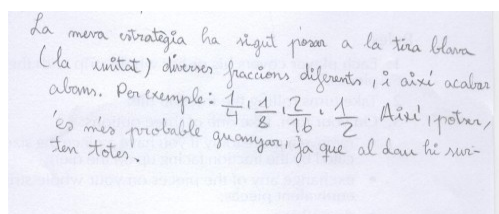 La meva estratègia ha sigut posar a la tira blava
(la unitat) diverses fraccions diferents, i així acabar
abans. Per exemple: 1/4, 1/8, 2/16, 1/2 Així, potser,
és més probable guanyar, ja que al dau hi sur-
ten totes.